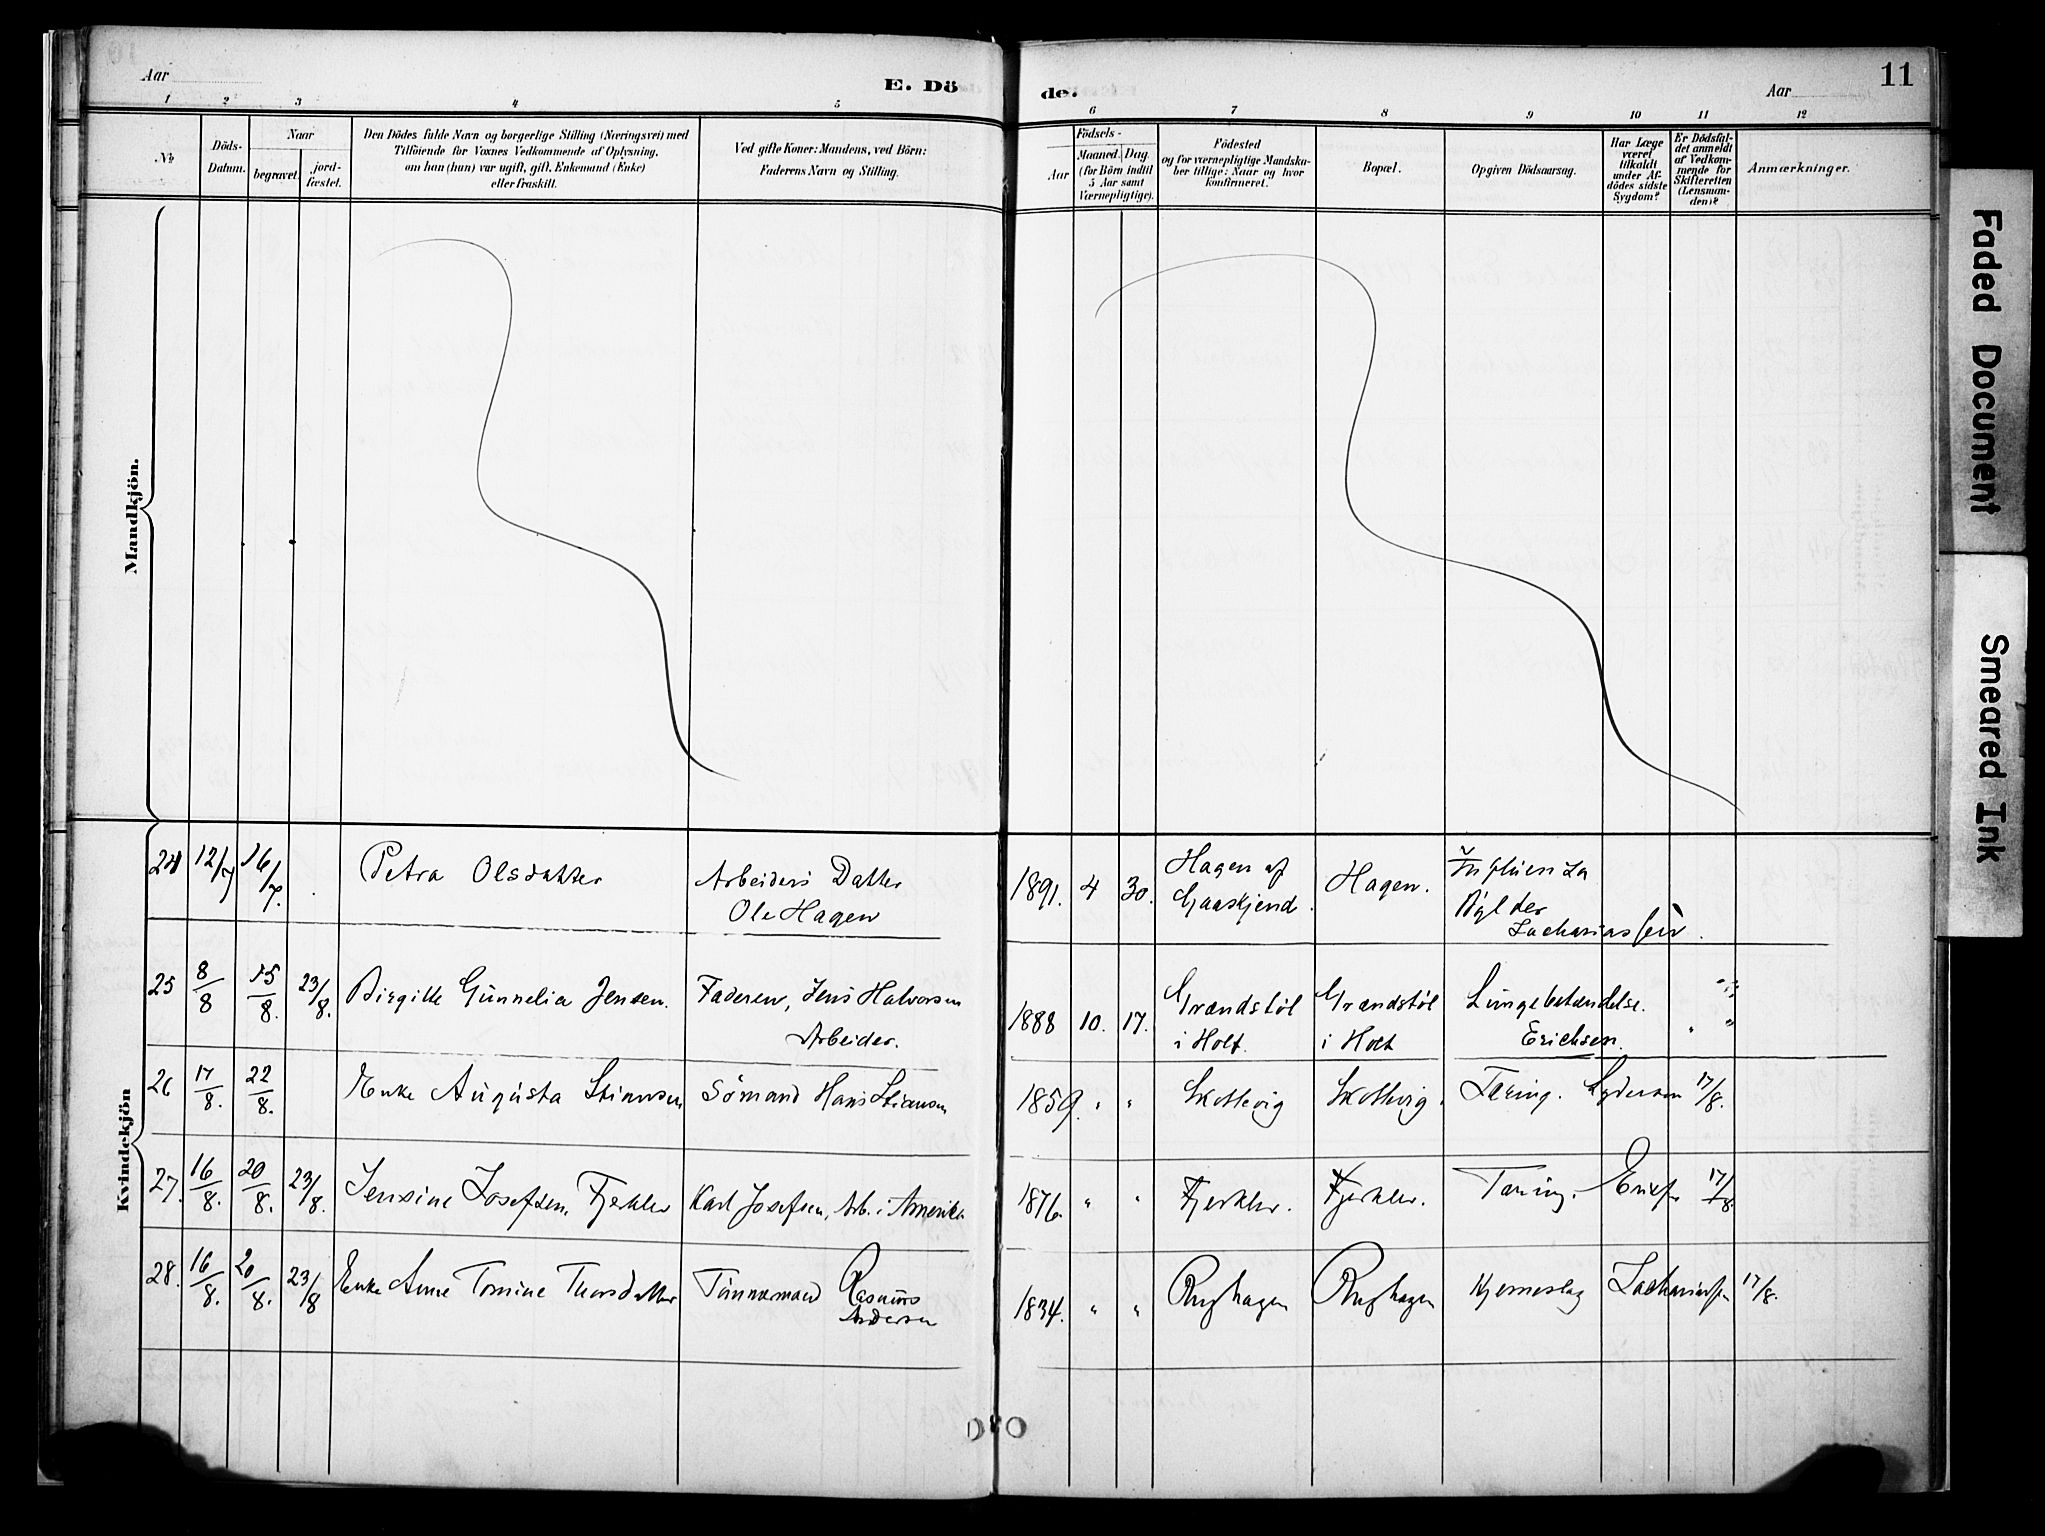 Aar
E. Dö
de.
Aar
11
1 2 3 4 5 6 7 8 9 10 11 12
No
Döds-
Datum.
Naar
begravet.
jord-
fæstet.
Den Dödes fulde Navn og borgerlige Stilling (Næringsvei) med
Tilföiende for Voxnes Vedkommende af Oplysning,
om han (hun) var ugift, gift, Enkemand (Enke)
eller fraskilt.
Ved gifte Koner: Mandens, ved Börn:
Faderens Navn og Stilling.
Födsels-
Aar
Maaned. Dag.
(for Börn indtil
5 Aar samt
Værnepligtige).
Födested
og for værnepligtige Mandska-
ber tillige: Naar og hvor
konfirmeret.
Bopæl.
Opgiven Dödsaarsag.
Har Læge
været
tilkaldt
under Af-
dödes sidste
Sygdom?
Er Dödsfal-
det anmeldt
af Vedkom-
mende for
Skifteretten
(Lensman-
den)?
Anmærkninger.
Mandkjön.
Kvindekjön
24 12/7 16/7. Petra Olsdatter Arbeiders Datter
Ole Hagen
1891. 4 30. Hagen af
Gaaskjend. Hagen.
Zachariassen.
25 8/8 15/8. 23/8. Birgitte Gunnelia Jensen. Faderen, Jens Halvorsen
Arbeider.
1888 10. 17. Grændstöl
i Holt. Grændstöl
i Holt Lungebetændelse.
Erichsen. " "
26 17/8. 22/8. Enke Augusta Stiansen Sömand Hans Stiansen
1859. " " Skottevig Skottevig. Tæring. Lydersen 17/8.
27. 16/8. 20/8. 23/8. Jensine Josefsen, Fjerkler Karl Josefsen, Arb. i Amerika
1876. " " Fjerkler. Fjerkler. Tæring. 17/8.
28. 16/8. 20/8. 23/8 Enke Anne Tomine Thorsdatter Tömmermand Rasmus
Andersen
1834. " " Rughagen Rughagen Hjerneslag Zachariassen 17/8.
Faded Document
Smeared Ink